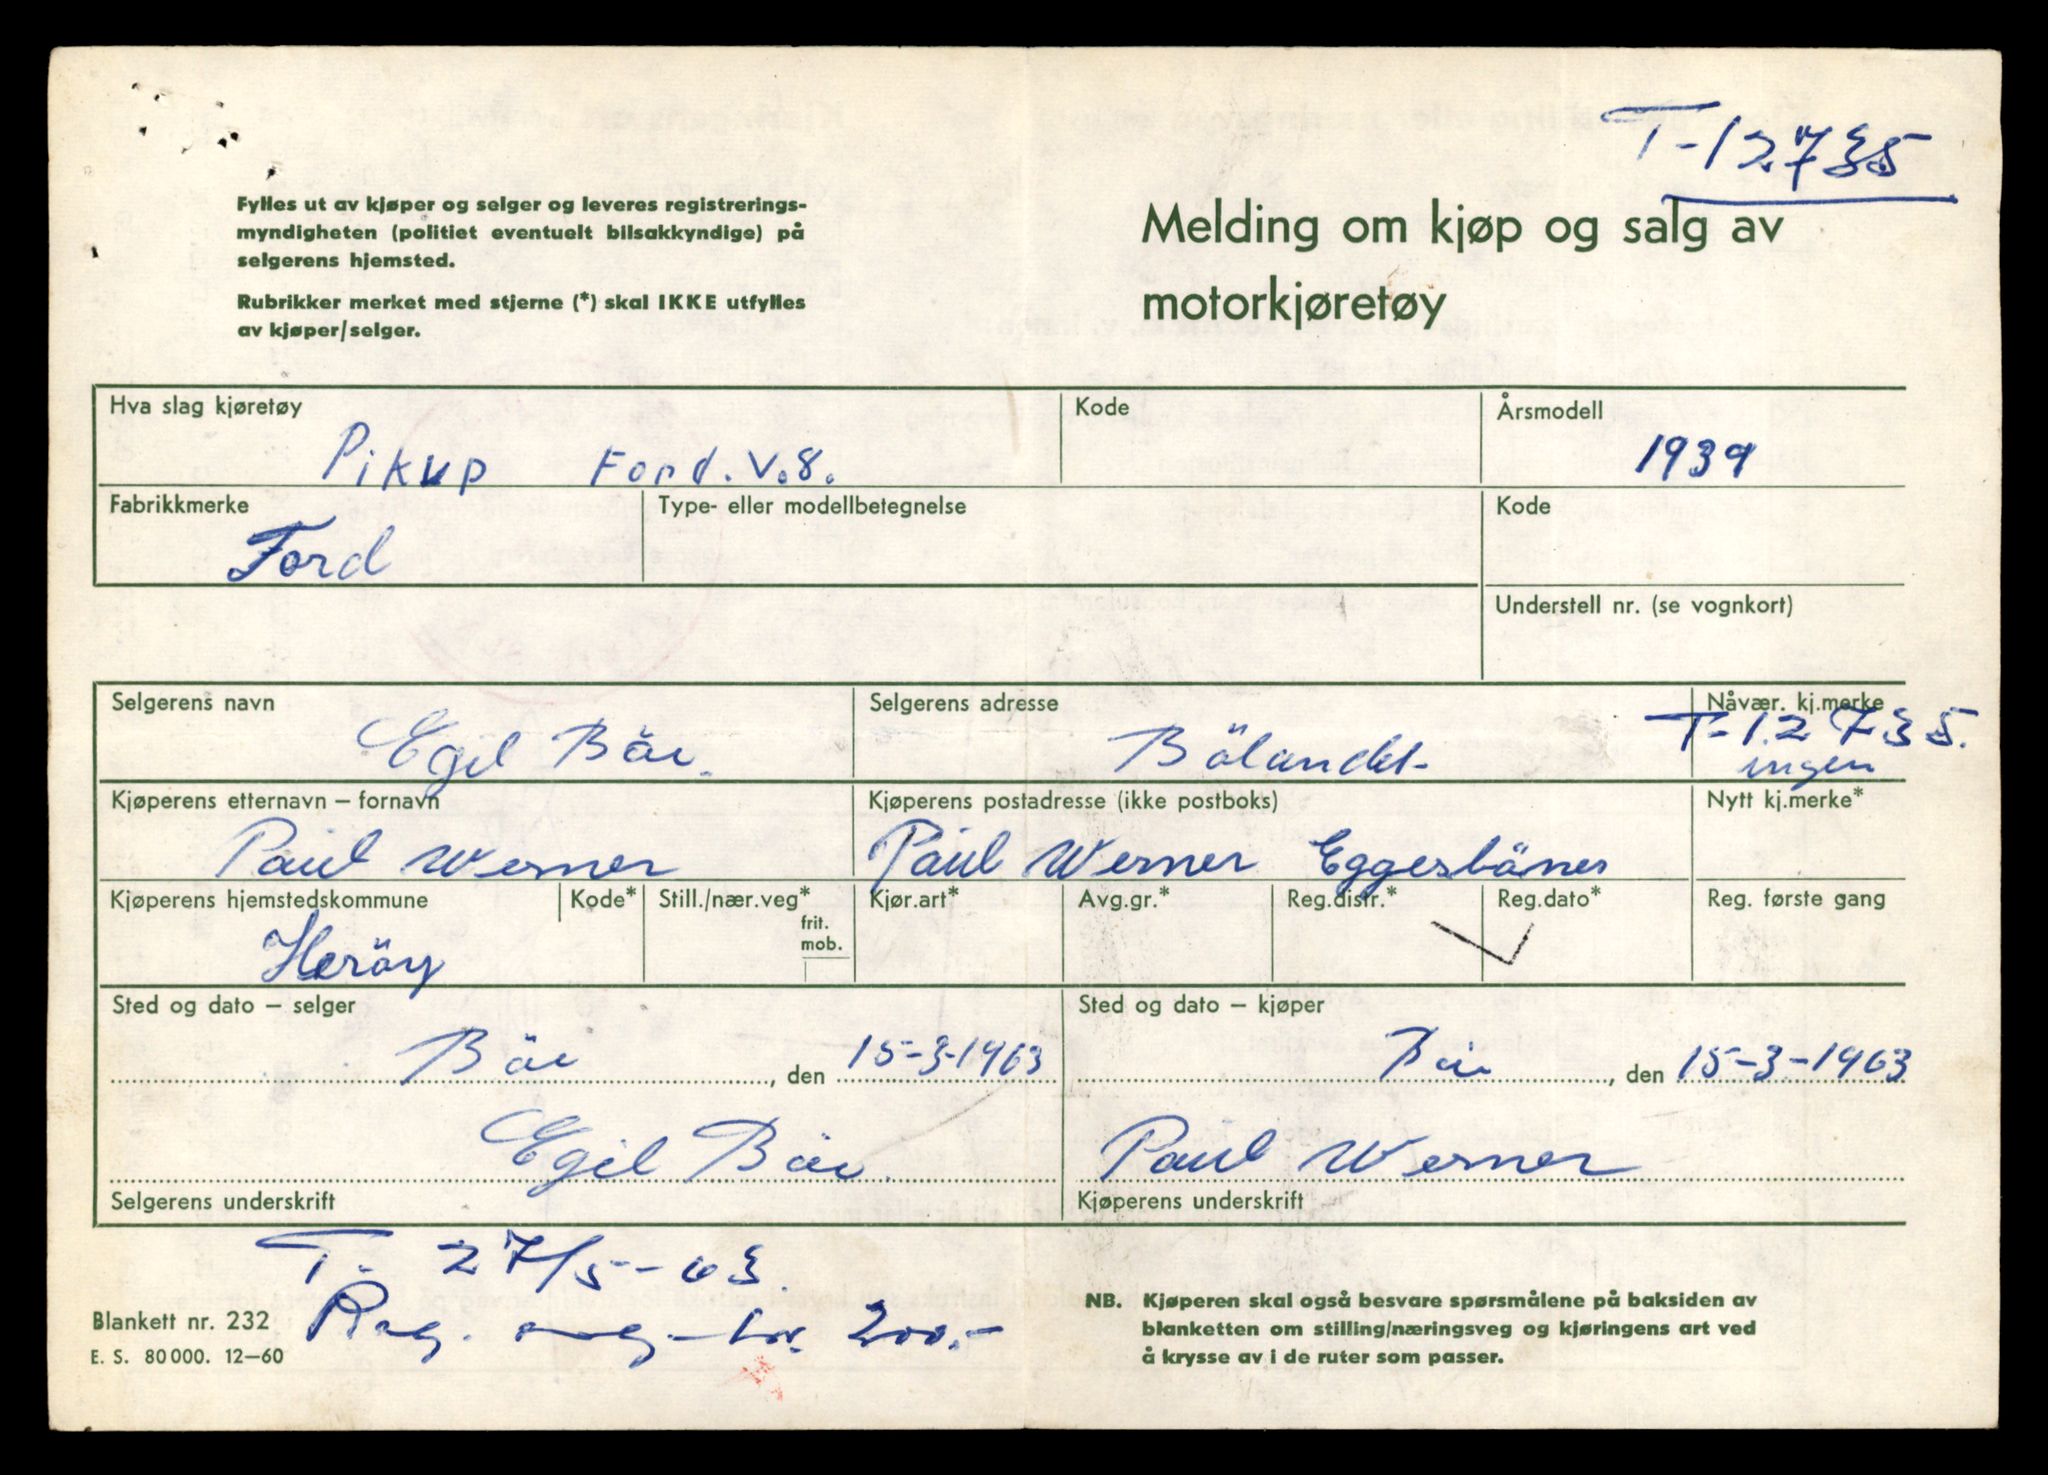 T-12735
Fylles ut av kjøper og selger og leveres registrerings-
myndigheten (politiet eventuelt bilsakkyndige) på
selgerens hjemsted.
Rubrikker merket med stjerne (*) skal IKKE utfylles
av kjøper/selger.
Melding om kjøp og salg av
motorkjøretøy
Hva slag kjøretøy
Kode
Årsmodell
Pikup Ford. V.8.
1939
Fabrikkmerke
Type- eller modellbetegnelse
Kode
Ford
Understell nr. (se vognkort)
Selgerens navn
Selgerens adresse
Nåvær. kj.merke
Egil Böe.
Bölandet
T-12735.
ingen
Kjøperens etternavn – fornavn
Kjøperens postadresse (ikke postboks)
Nytt kj.merke*
Paul Werner
Paul Werner Eggesbönes
Kjøperens hjemstedskommune
Kode*
Still./nær.veg*
frit.
mob.
Kjør.art*
Avg.gr.*
Reg.distr.*
Reg.dato*
Reg. første gang
Heröy
Sted og dato – selger
Sted og dato – kjøper
Böe, den 15-3-1963
Böe, den 15-3-1963
Egil Böe.
Paul Werner
Selgerens underskrift
Kjøperens underskrift
T. 27/5-63.
Reg. avg. kr. 200.-
Blankett nr. 232
E. S. 80 000. 12–60
NB. Kjøperen skal også besvare spørsmålene på baksiden av
blanketten om stilling/næringsveg og kjøringens art ved
å krysse av i de ruter som passer.